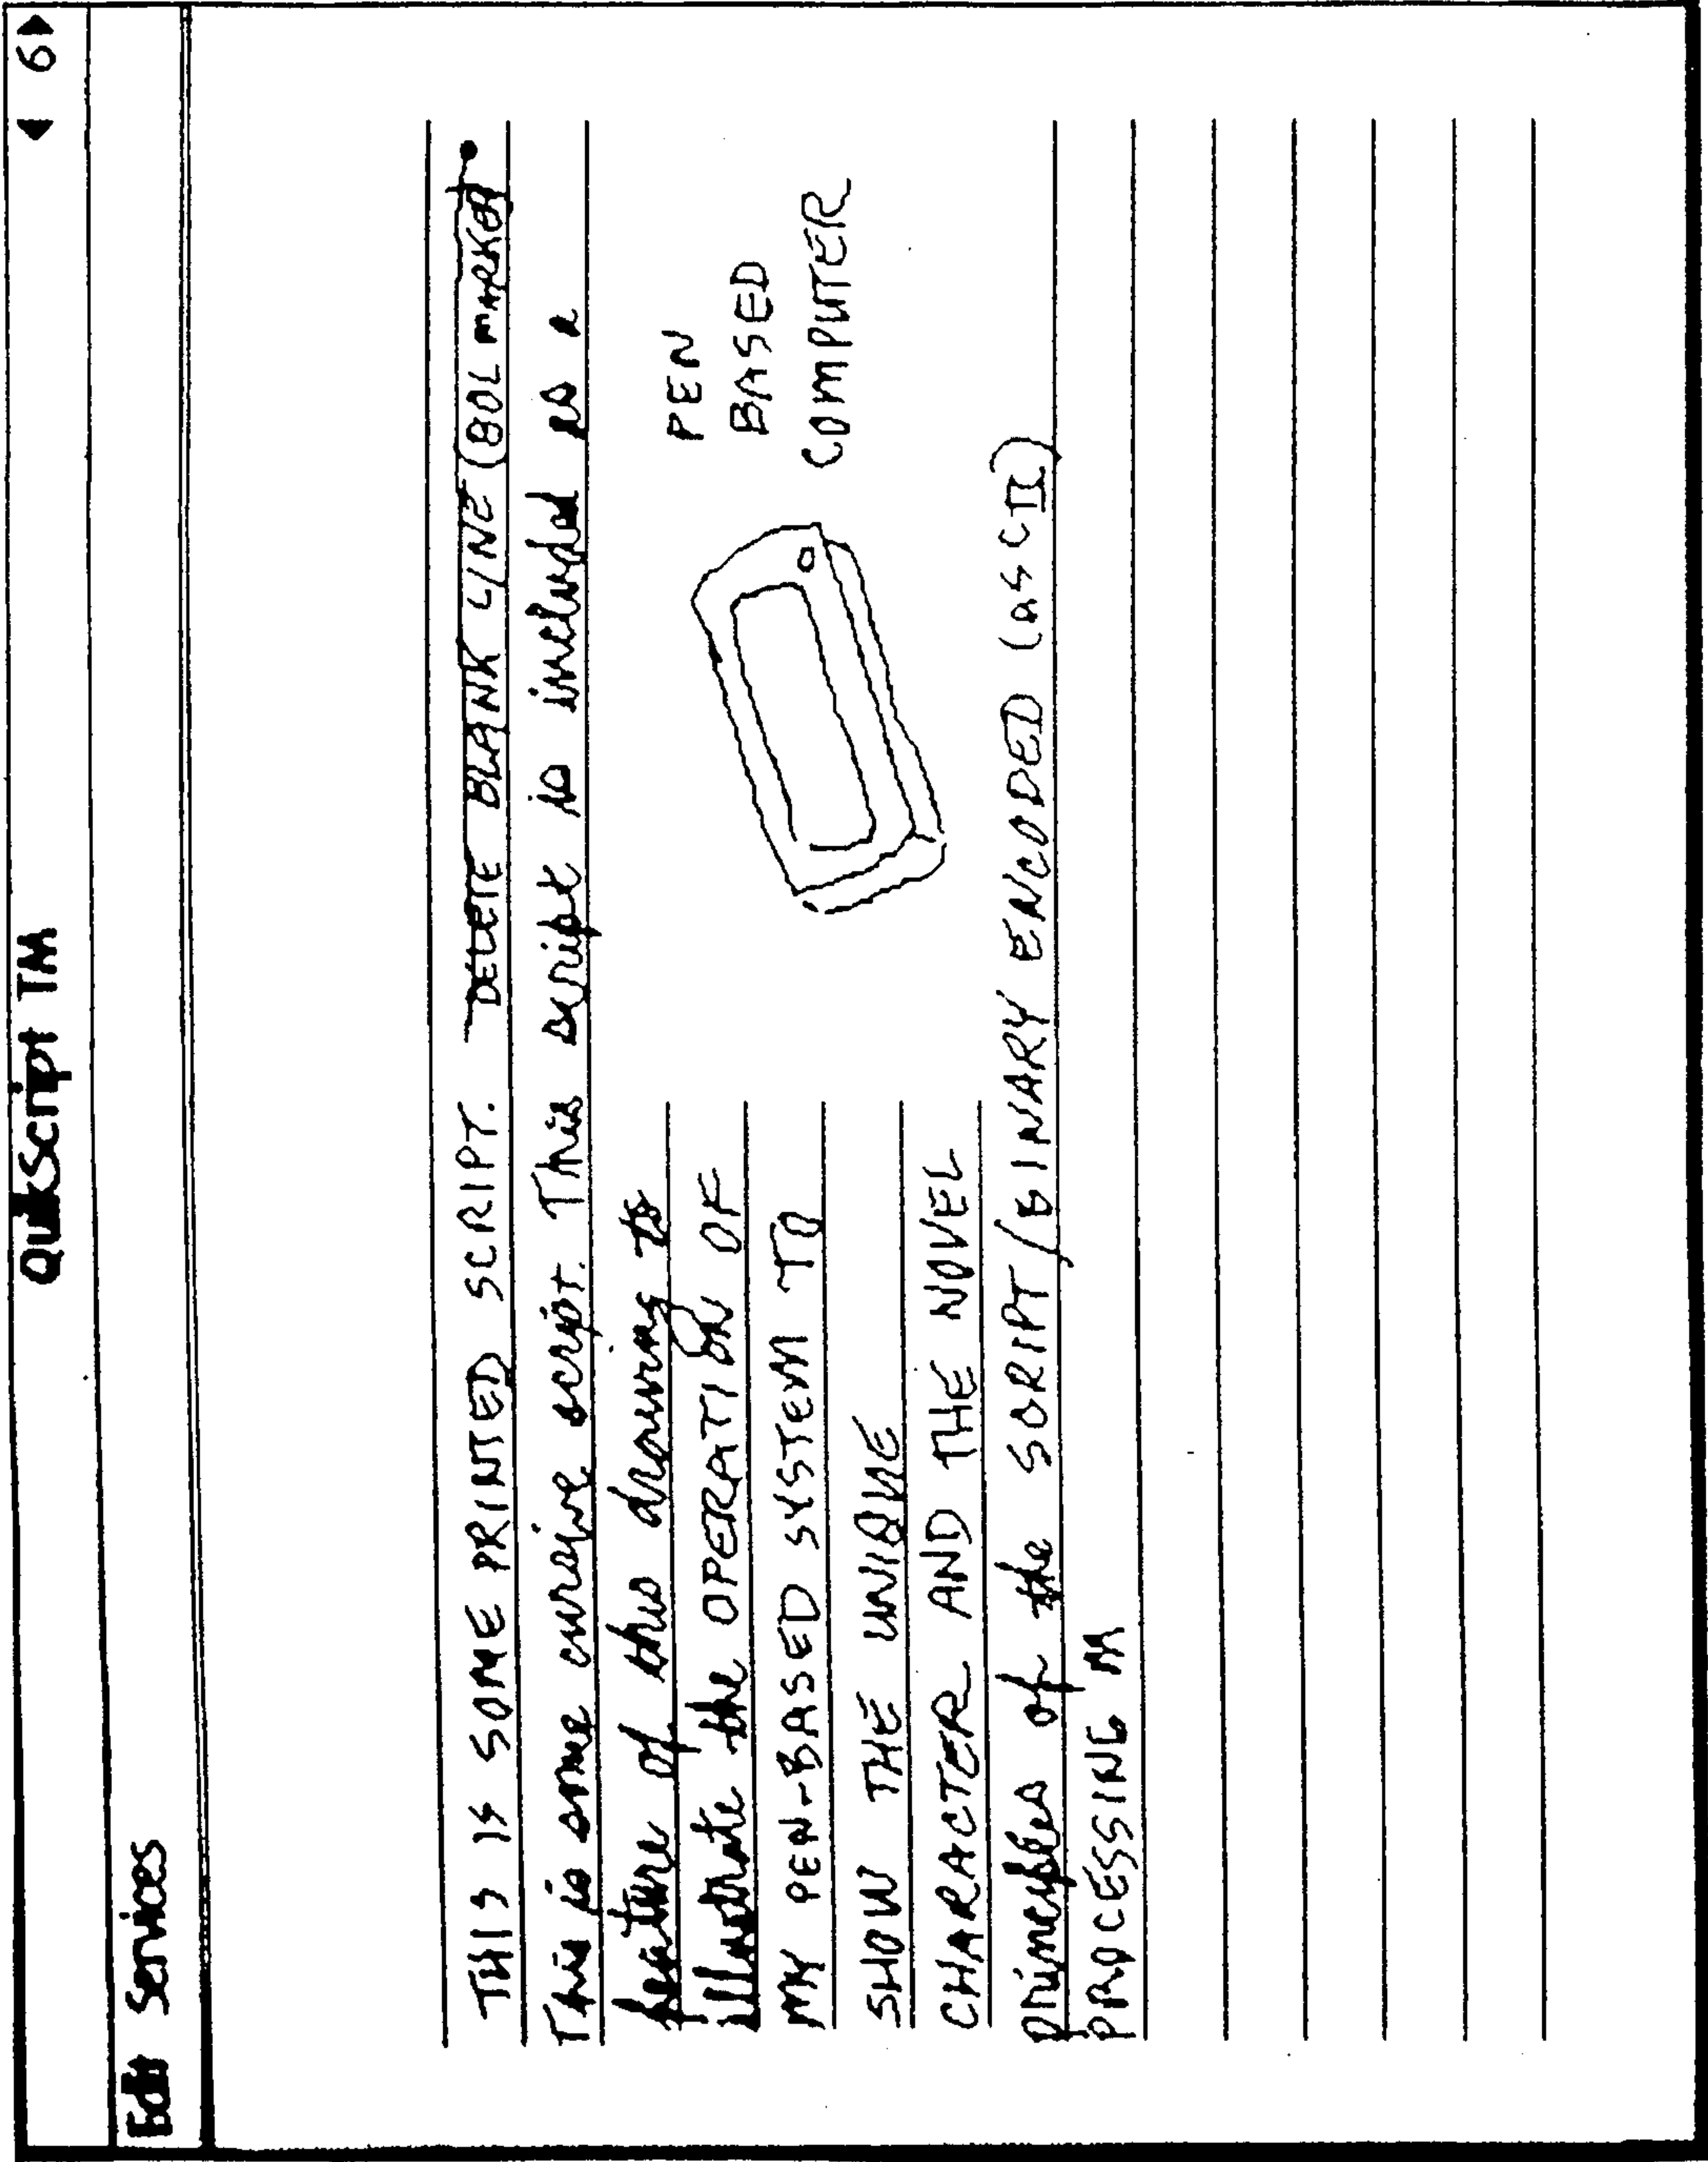 QuikScript TM
◀ 6▶
Edit Services
THIS IS SOME PRINTED SCRIPT. DELETE BLANK LINE (BOL MARKET
This is some cursive script. This script is included as a
feature of this drawing to
illustrate the OPERATION OF
MY PEN-BASED SYSTEM TO
SHOW THE UNIQUE
CHARACTER AND THE NOVEL
principles of the SCRIPT/BINARY ENCODED (ASCII)
PROCESSING M
PEN
BASED
COMPUTER